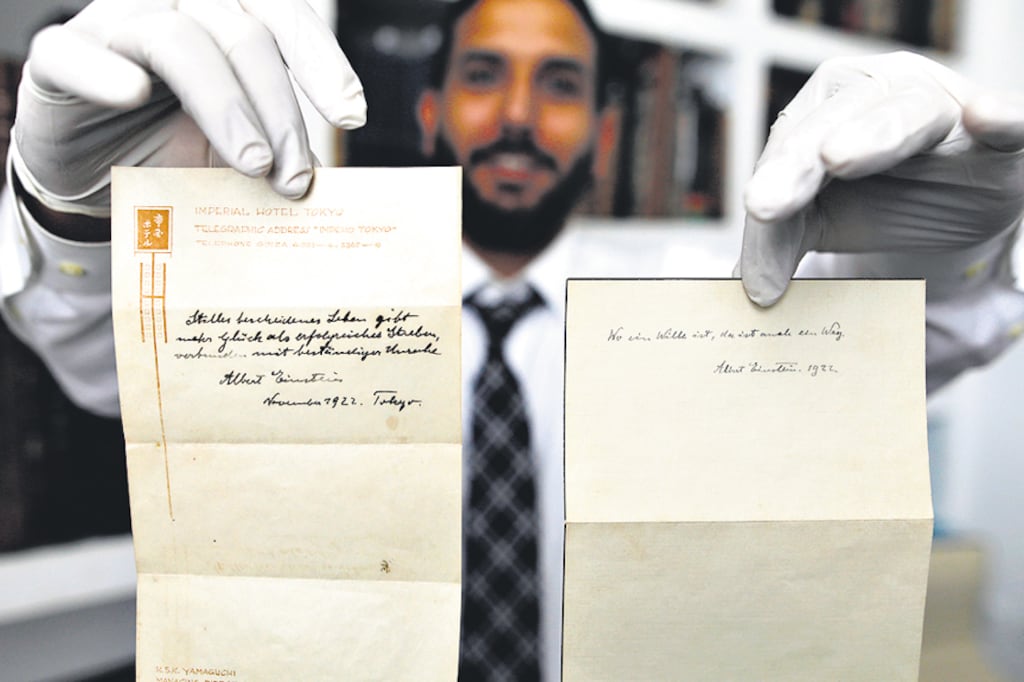 帝国
ホテル
IMPERIAL HOTEL TOKYO
TELEGRAPHIC ADDRESS "IMPEHO TOKYO"
TELEPHONE GINZA
Stilles bescheidenes Leben gibt
mehr Glück als erfolgreiches Streben,
verbunden mit beständiger Unruhe
Albert Einstein
November 1922. Tokyo.
K.S.K. YAMAGUCHI
MANAGING
Wo ein Wille ist, da ist auch ein Weg.
Albert Einstein. 1922.